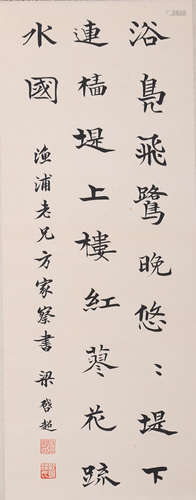 浴鳧飛鷺晚悠〻堤下
連檣堤上樓紅蓼花疏
水國
漁浦老兄方家察書 梁啓超